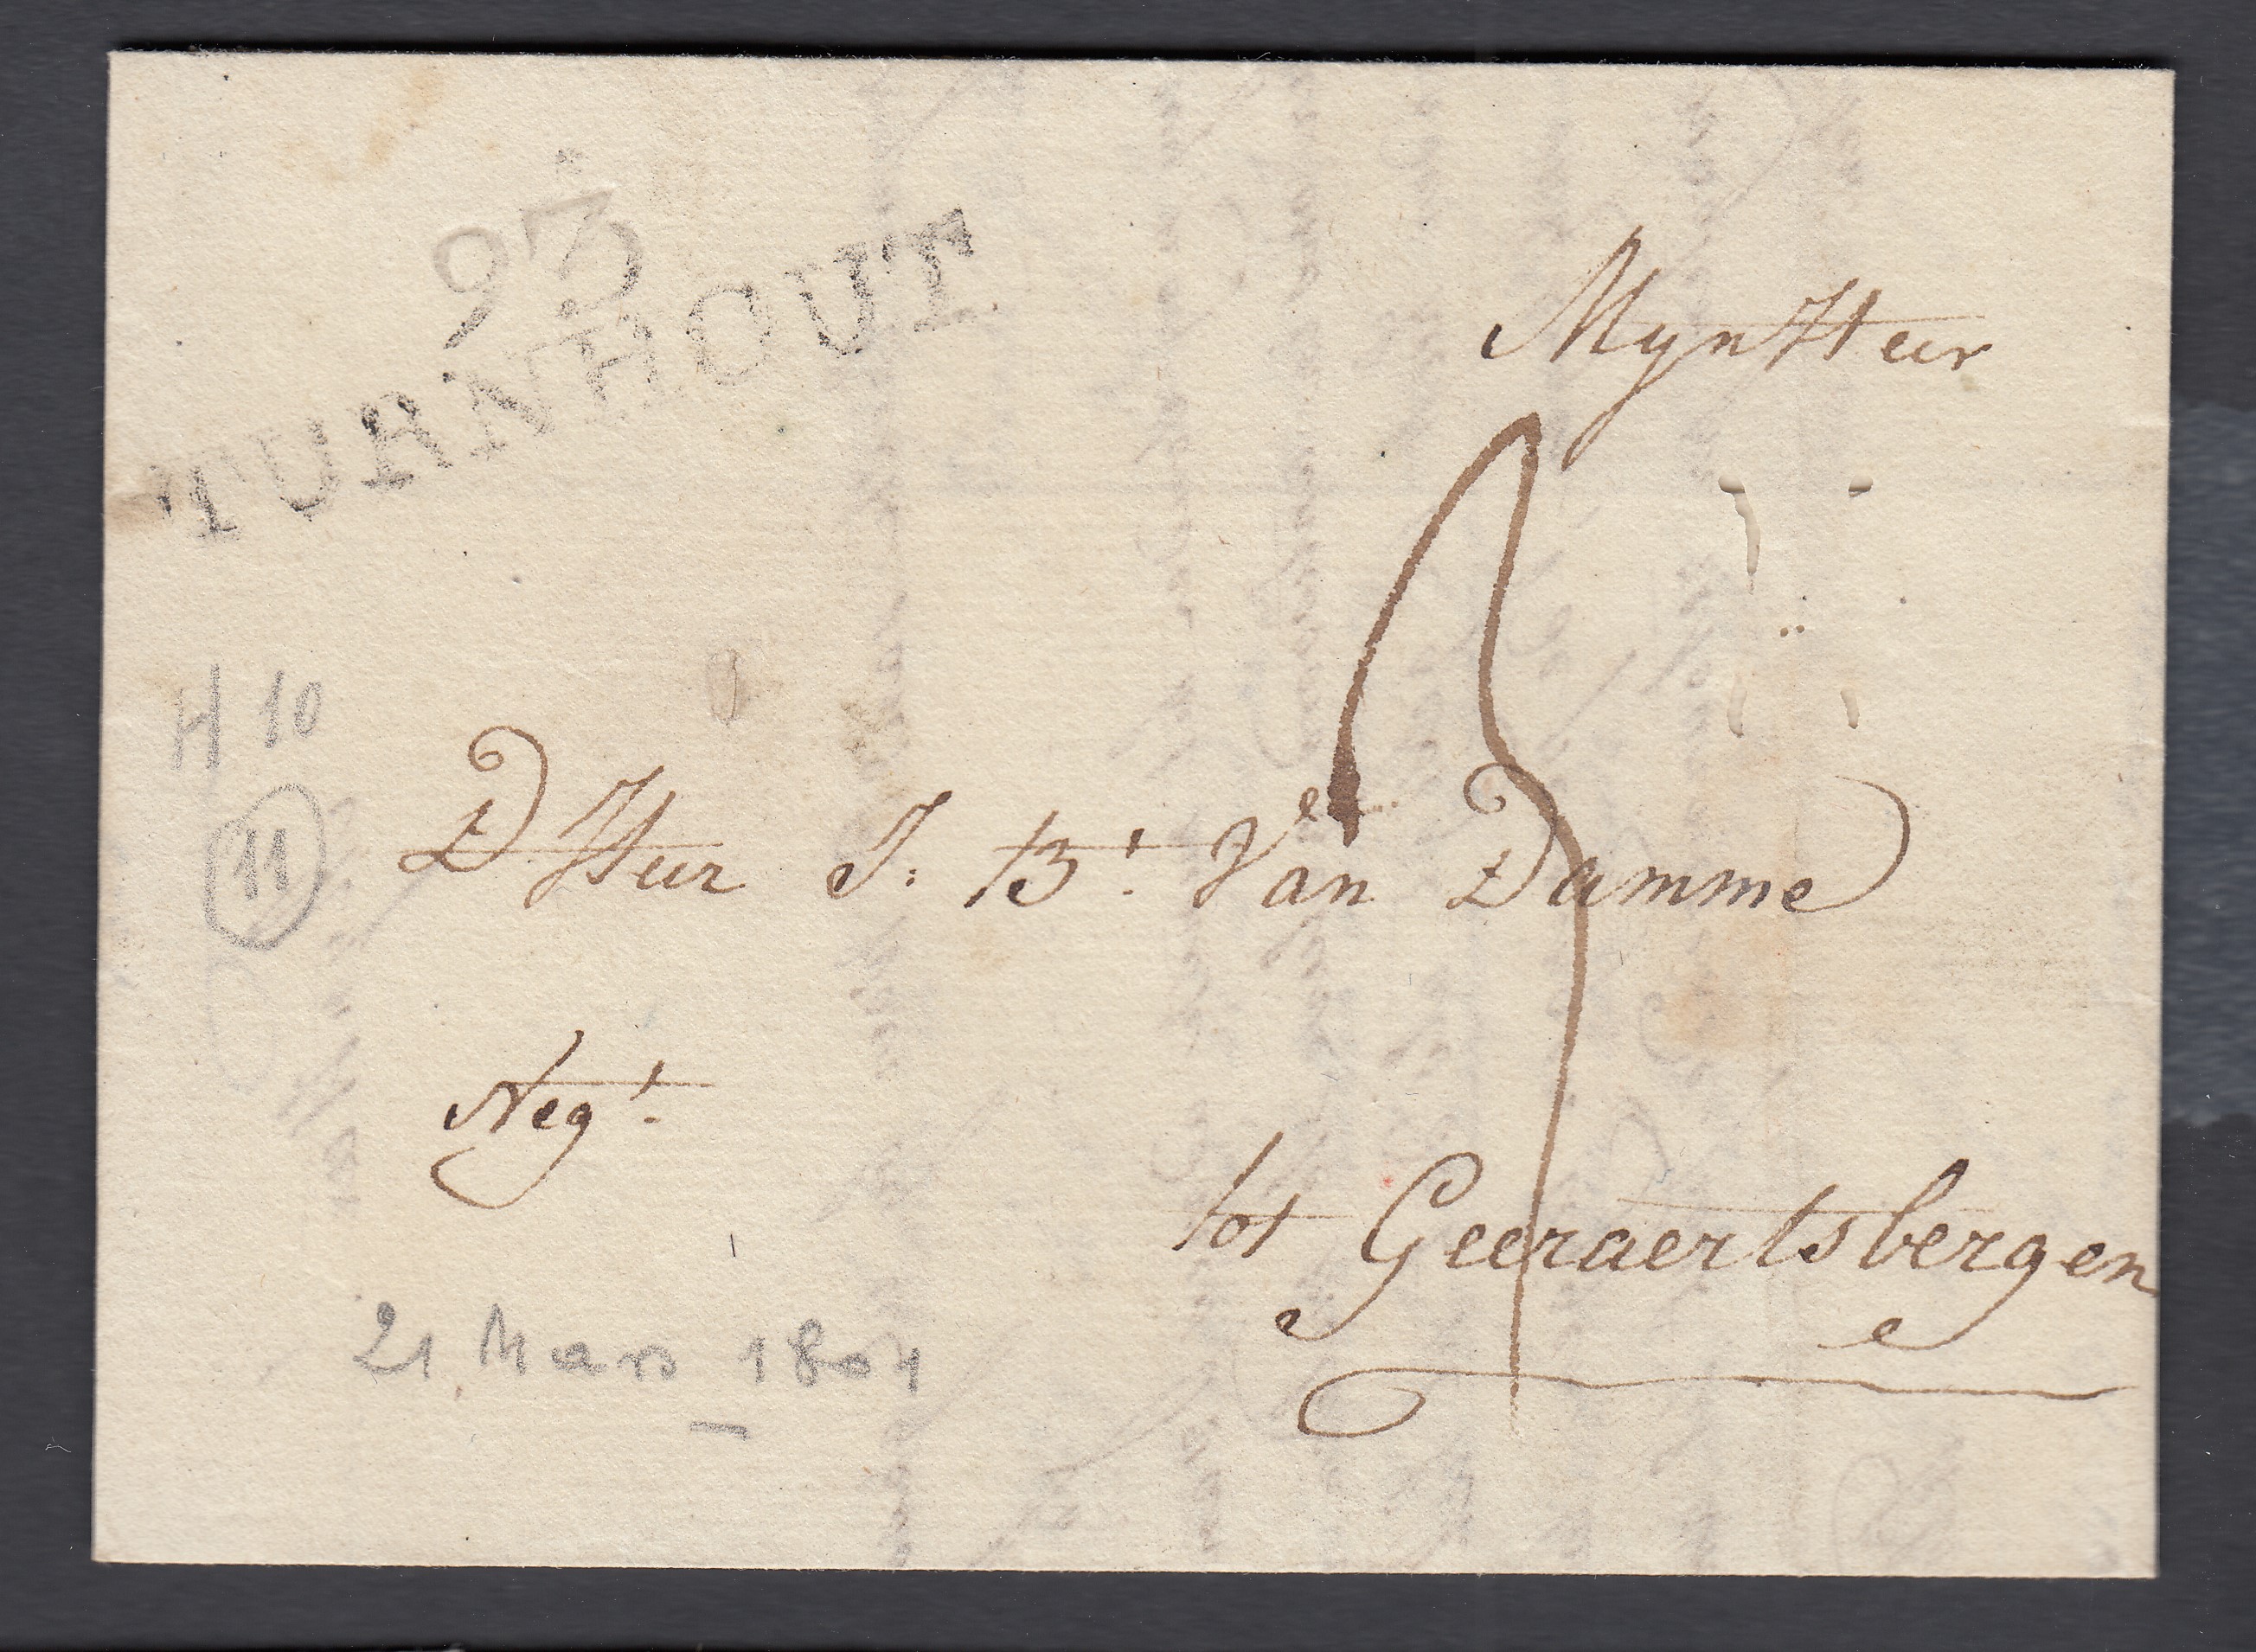 93
TURNHOUT
MynHeer
3
H 10
11
D Heer J: Bt. Van Damme
Negt.
tot Geeraertsbergen
21 Mars 1804